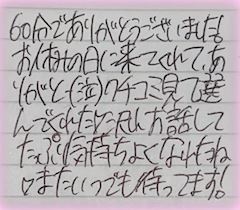 60分でありがとうございました!
お休みの日に来てくれて、あ
りがと(泣)クチコミ見て選
んでくれたり沢山お話して
たっぷり気持ちよくなれたね
またいつでも待ってます!